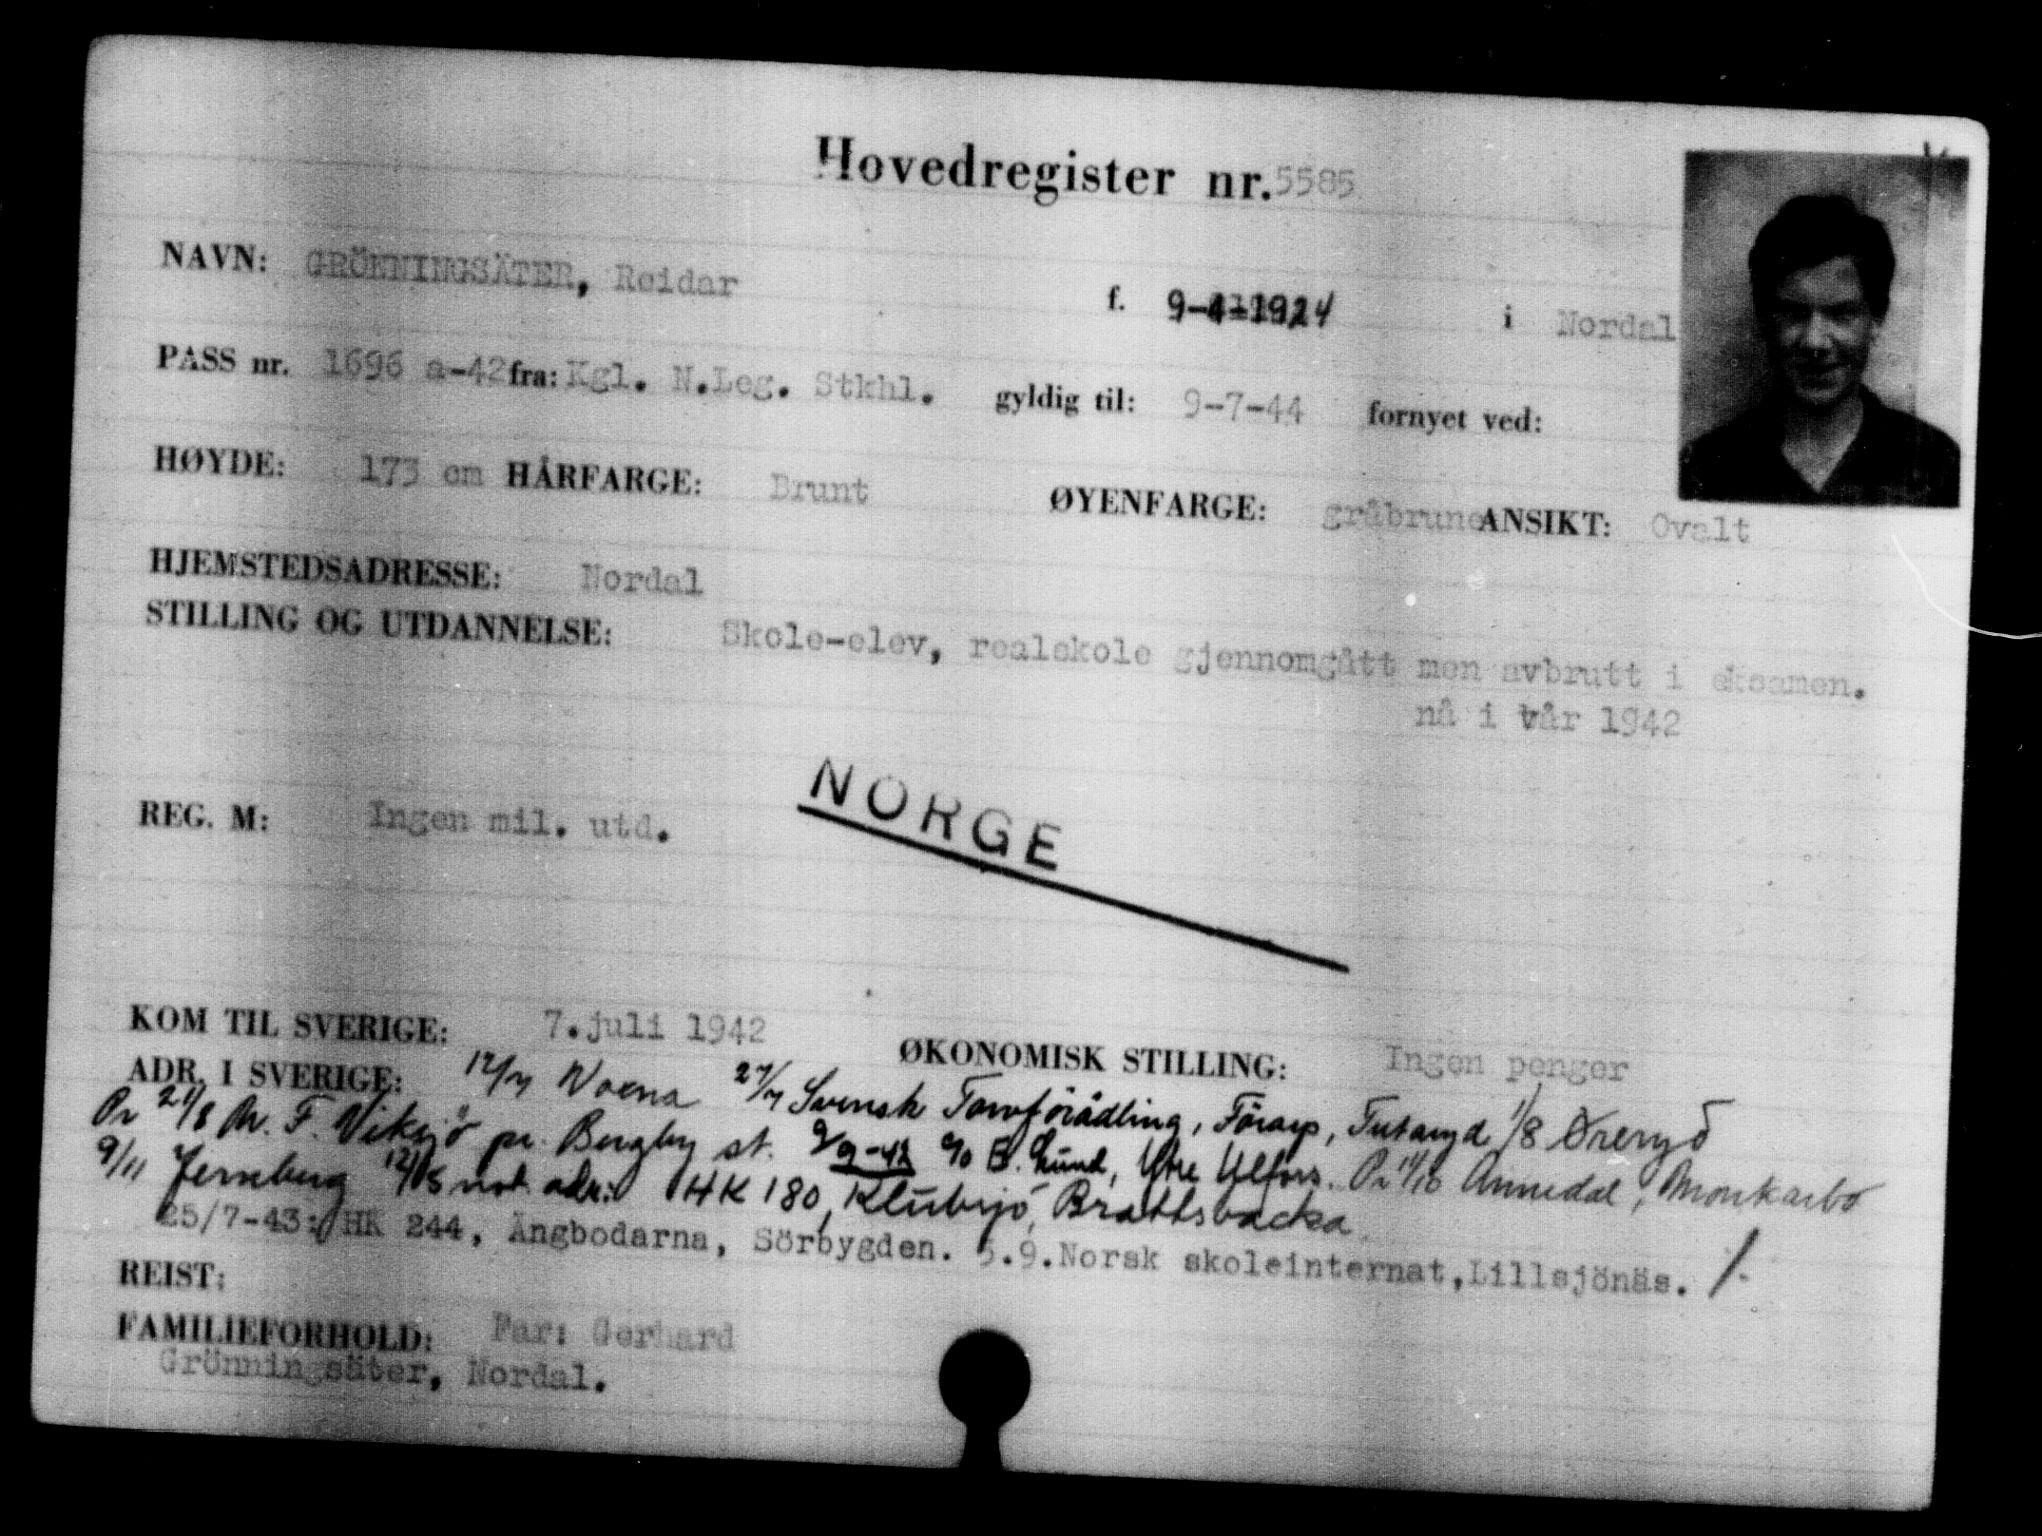 Hovedregister nr. 5585
NAVN: GRÖNNINGSÄTER, Reidar f. 9-4-1924 i Nordal
PASS nr. 1696 a-42 fra: Kgl. N.Leg. Stkhl. gyldig til: 9-7-44 fornyet ved:
HØYDE: 173 cm HÅRFARGE: Brunt ØYENFARGE: gråbrune ANSIKT: Ovalt
HJEMSTEDSADRESSE: Nordal
STILLING OG UTDANNELSE: Skole-elev, realskole gjennomgått men avbrutt i eksamen.
nå i vår 1942
NORGE
REG. M: Ingen mil. utd.
KOM TIL SVERIGE: 7.juli 1942 ØKONOMISK STILLING: Ingen penger
ADR. I SVERIGE: 12/7 27/7 Svensk Torvförädling, 1/8 Öreryd
Pr 21/8 M. F. Viksjö pr. Bergby st. 9/9-42 c/o E. Lund, Yttre Ulfors. Pr 14/10 Annedal, Monkarbo
9/11 Jerneberg 12/5 not. adr: HK 180, Klubsjö, Brattsbacka
25/7-43: HK 244, Ängbodarna, Sörbygden. 5.9. Norsk skoleinternat, Lillsjönäs.
REIST:
FAMILIEFORHOLD: Far: Gerhard
Grönningsäter, Nordal.